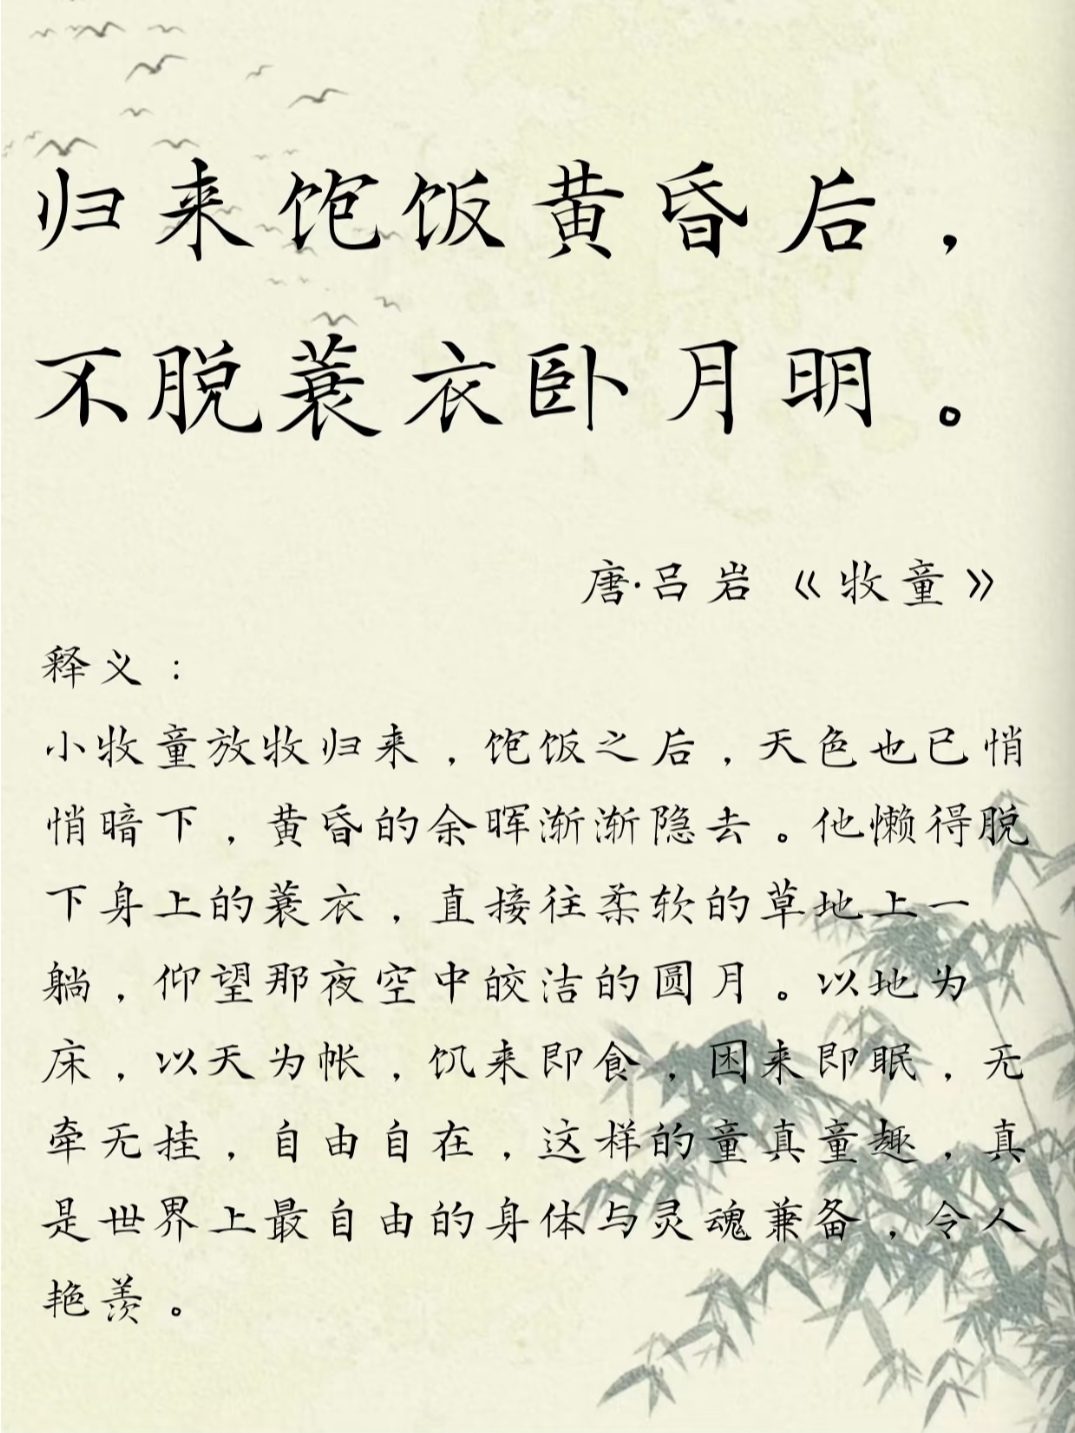 归来饱饭黄昏后，
不脱蓑衣卧月明。
唐·吕岩《牧童》
释义：
小牧童放牧归来，饱饭之后，天色也已悄
悄暗下，黄昏的余晖渐渐隐去。他懒得脱
下身上的蓑衣，直接往柔软的草地上一
躺，仰望那夜空中皎洁的圆月。以地为
床，以天为帐，饥来即食，困来即眠，无
牵无挂，自由自在，这样的童真童趣，真
是世界上最自由的身体与灵魂兼备，令人
艳羡。